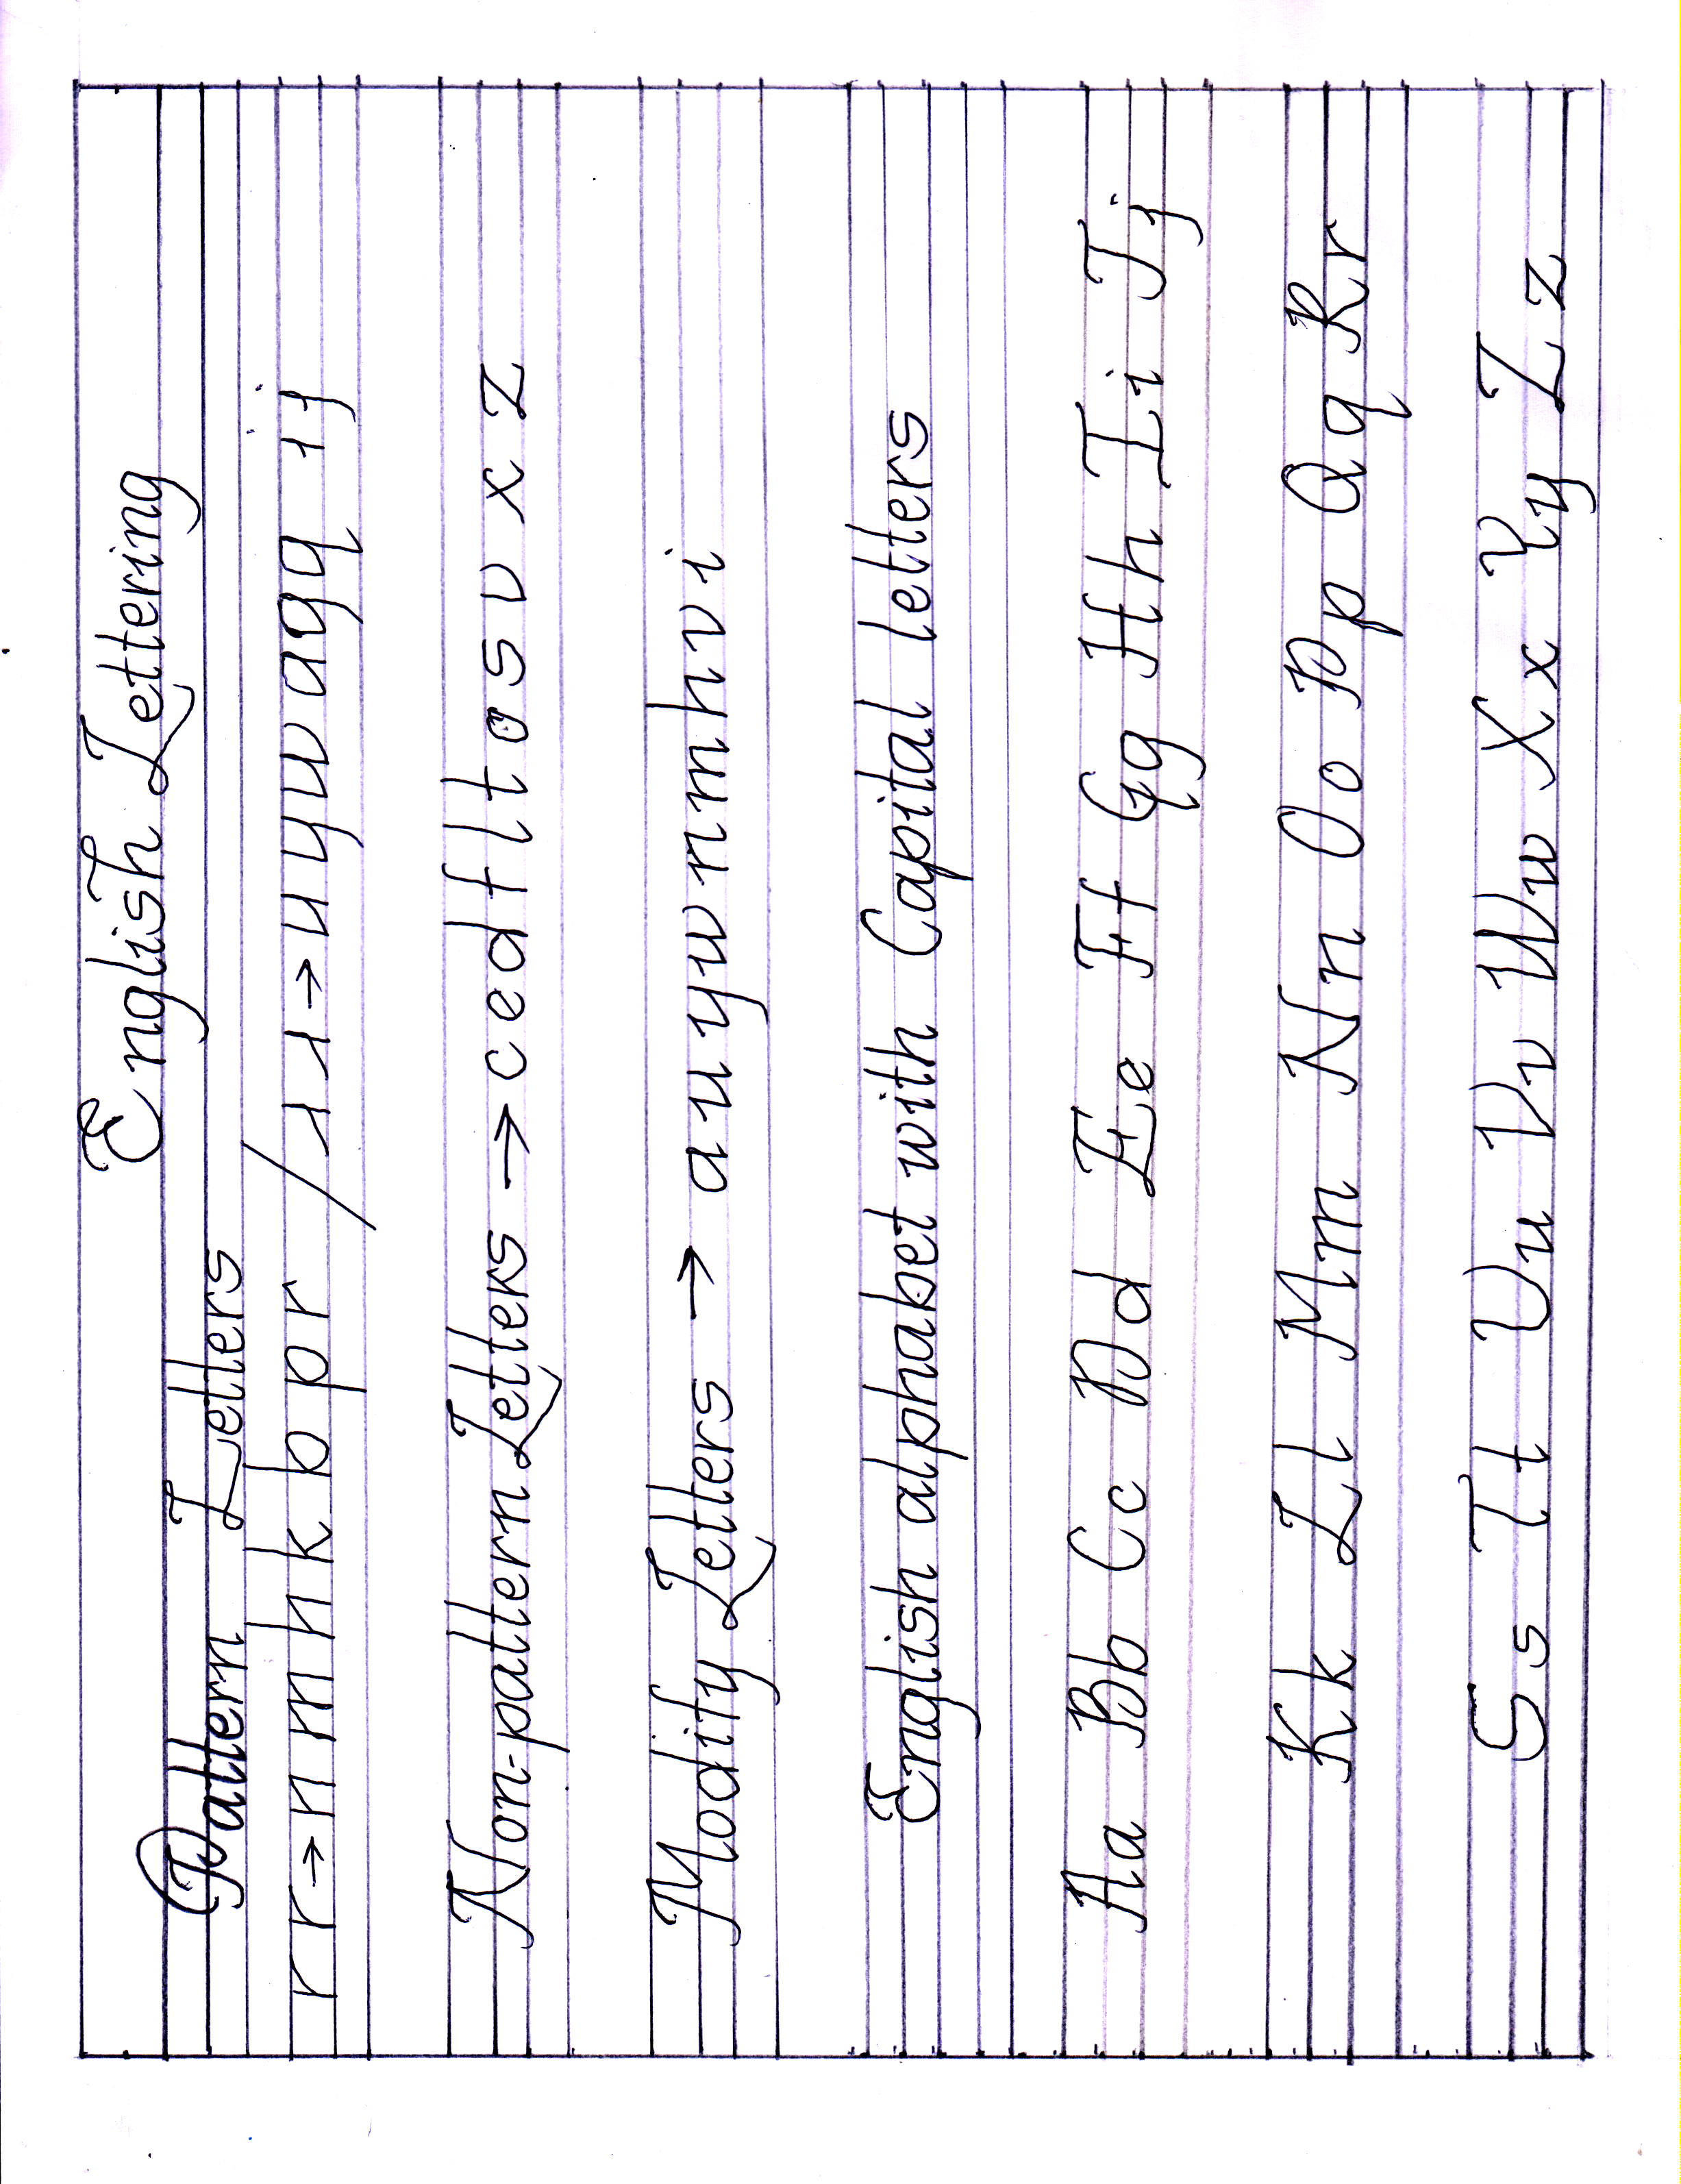 English Lettering
Pattern Letters
r r → n m h k b p r / ı ı → u y w a g q i j
Non-pattern Letters → c e d f l t o s v x z
Modify Letters → a u y w n m h v i
English alphabet with Capital letters
Aa Bb Cc Dd Ee Ff Gg Hh Ii Jj
Kk Ll Mm Nn Oo Pp Qq Rr
Ss Tt Uu Vv Ww Xx Yy Zz